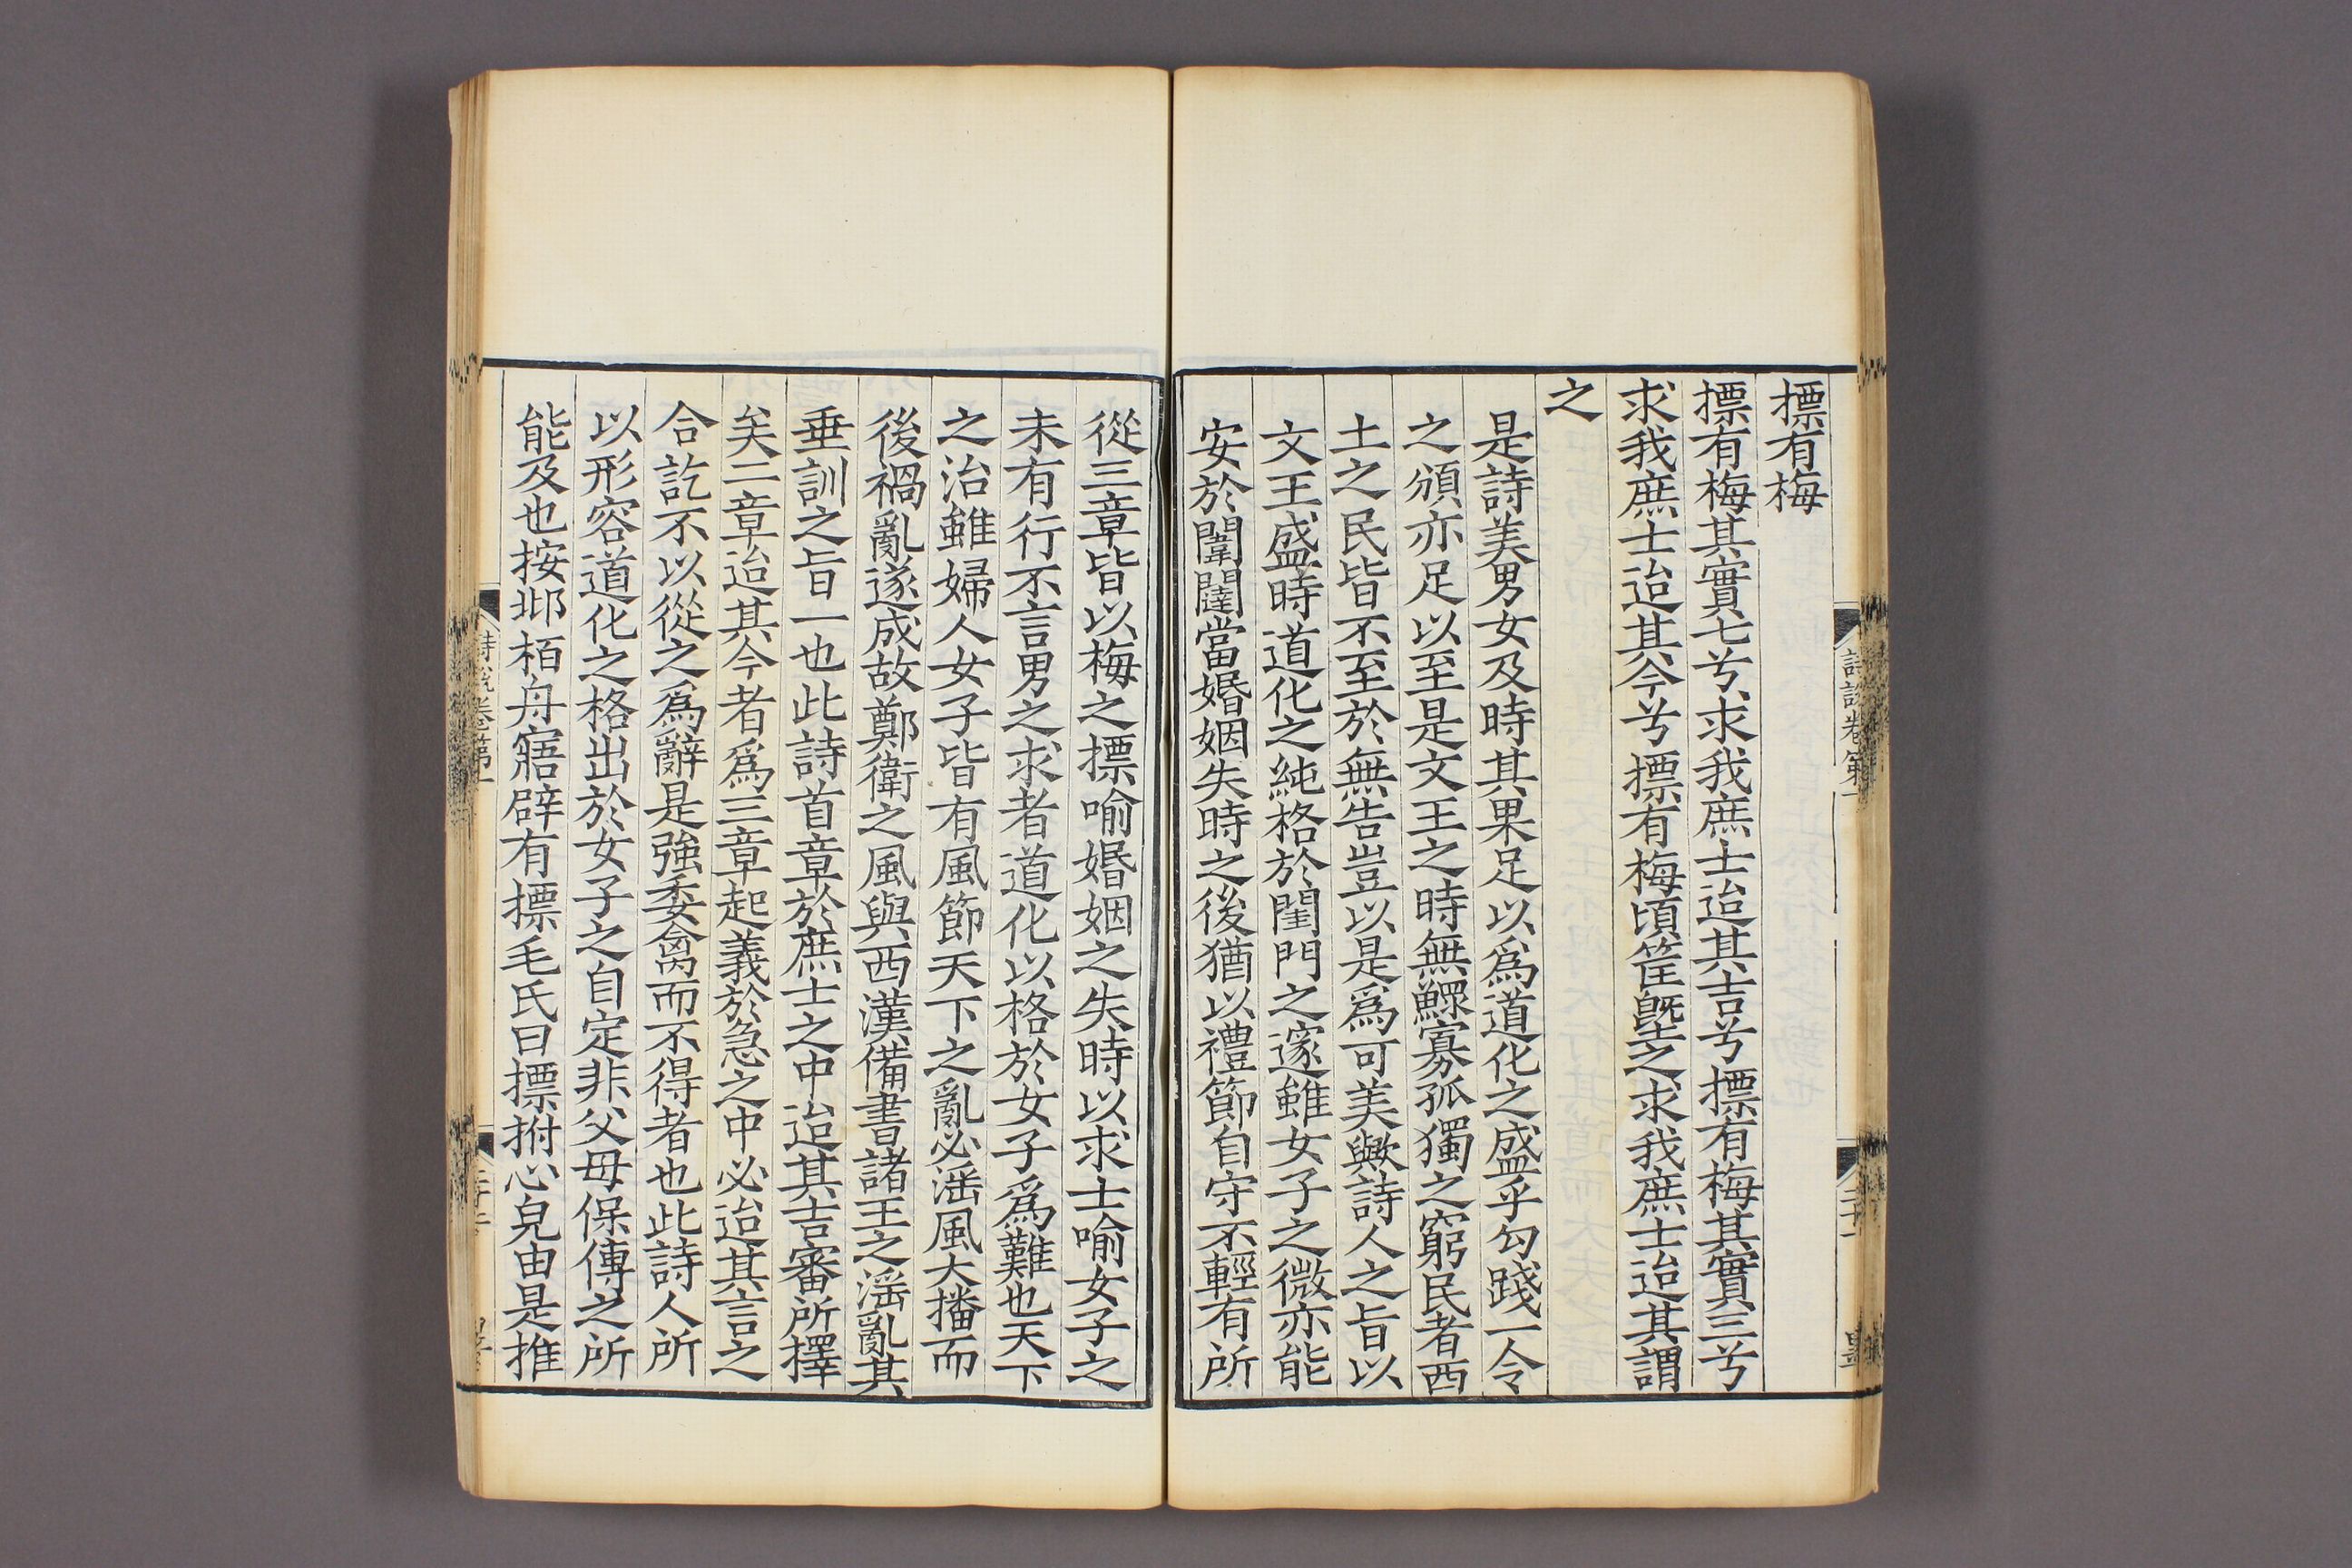 摽有梅
摽有梅其實七兮求我庶士迨其吉兮摽有梅其實三兮
求我庶士迨其今兮摽有梅頃筐塈之求我庶士迨其謂
之
是詩美男女及時其果足以爲道化之盛乎勾踐一令
之頒亦足以至是文王之時無鰥寡孤獨之窮民者西
土之民皆不至於無告豈以是爲可美歟詩人之旨以
文王盛時道化之純格於閨門之邃雖女子之微亦能
安於闈闥當婚姻失時之後猶以禮節自守不輕有所
從三章皆以梅之摽喻婚姻之失時以求士喻女子之
未有行不言男之求者道化以格於女子爲難也天下
之治雖婦人女子皆有風節天下之亂必滛風大播而
後禍亂遂成故鄭衛之風與西漢備書諸王之滛亂其
垂訓之旨一也此詩首章於庶士之中迨其吉審所擇
矣二章迨其今者爲三章起義於急之中必迨其言之
合訖不以從之爲辭是強委禽而不得者也此詩人所
以形容道化之格出於女子之自定非父母保傅之所
能及也按邶栢舟寤辟有摽毛氏曰摽拊心皃由是推
詩說卷第一